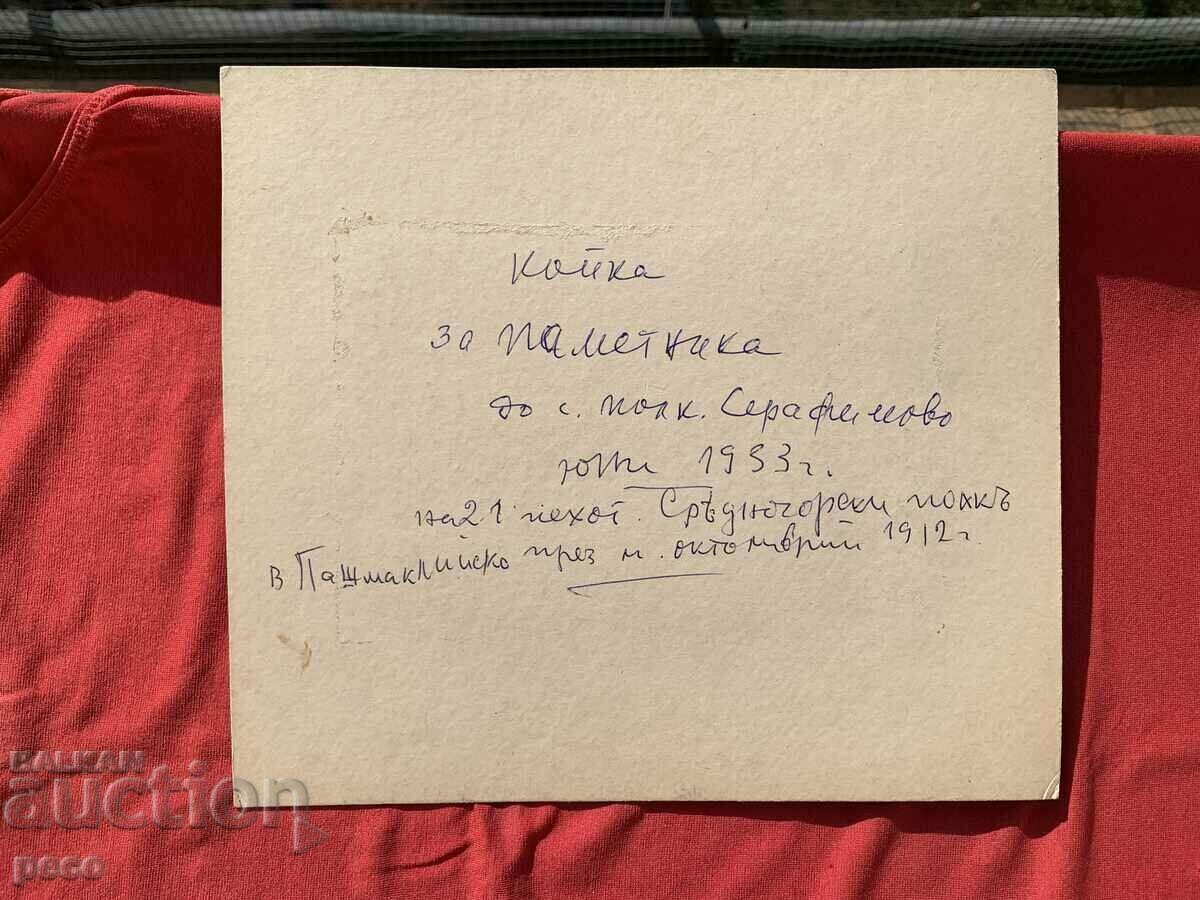 Койка
за паметника
до с. полк. Серафимово
юни 1933 г.
на 21 пехот. Срѣдногорски полкъ
в Пашмаклийско през м. октомврий 1912 г.
BALKAN
auction
peco